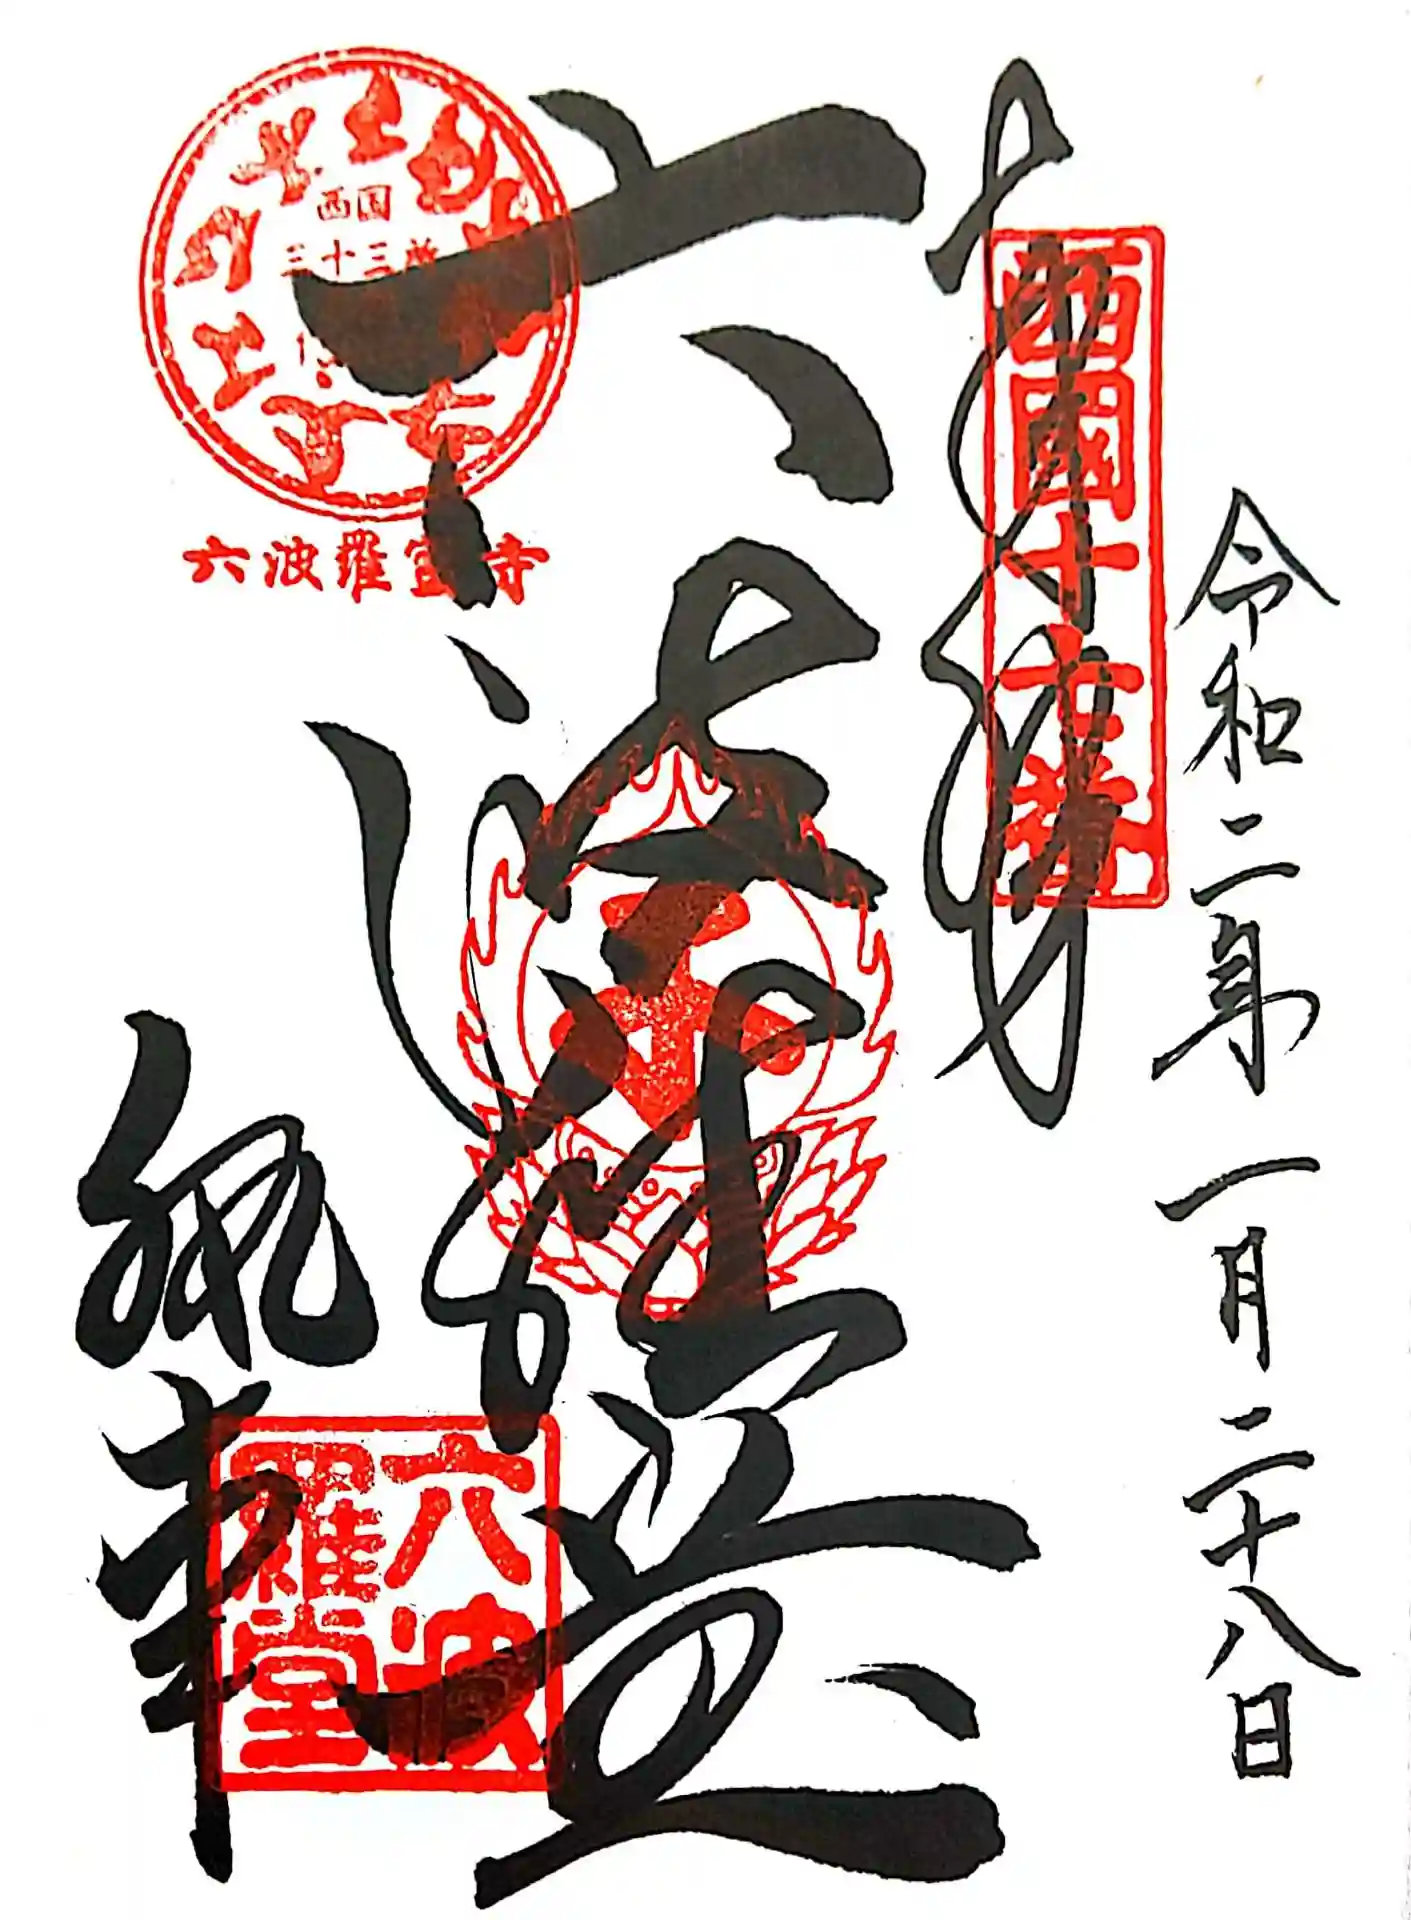 令和二年一月二十八日
奉拝
西國十七番
六波羅堂
西国
三十三所
六波羅蜜寺
執事
六波
羅堂